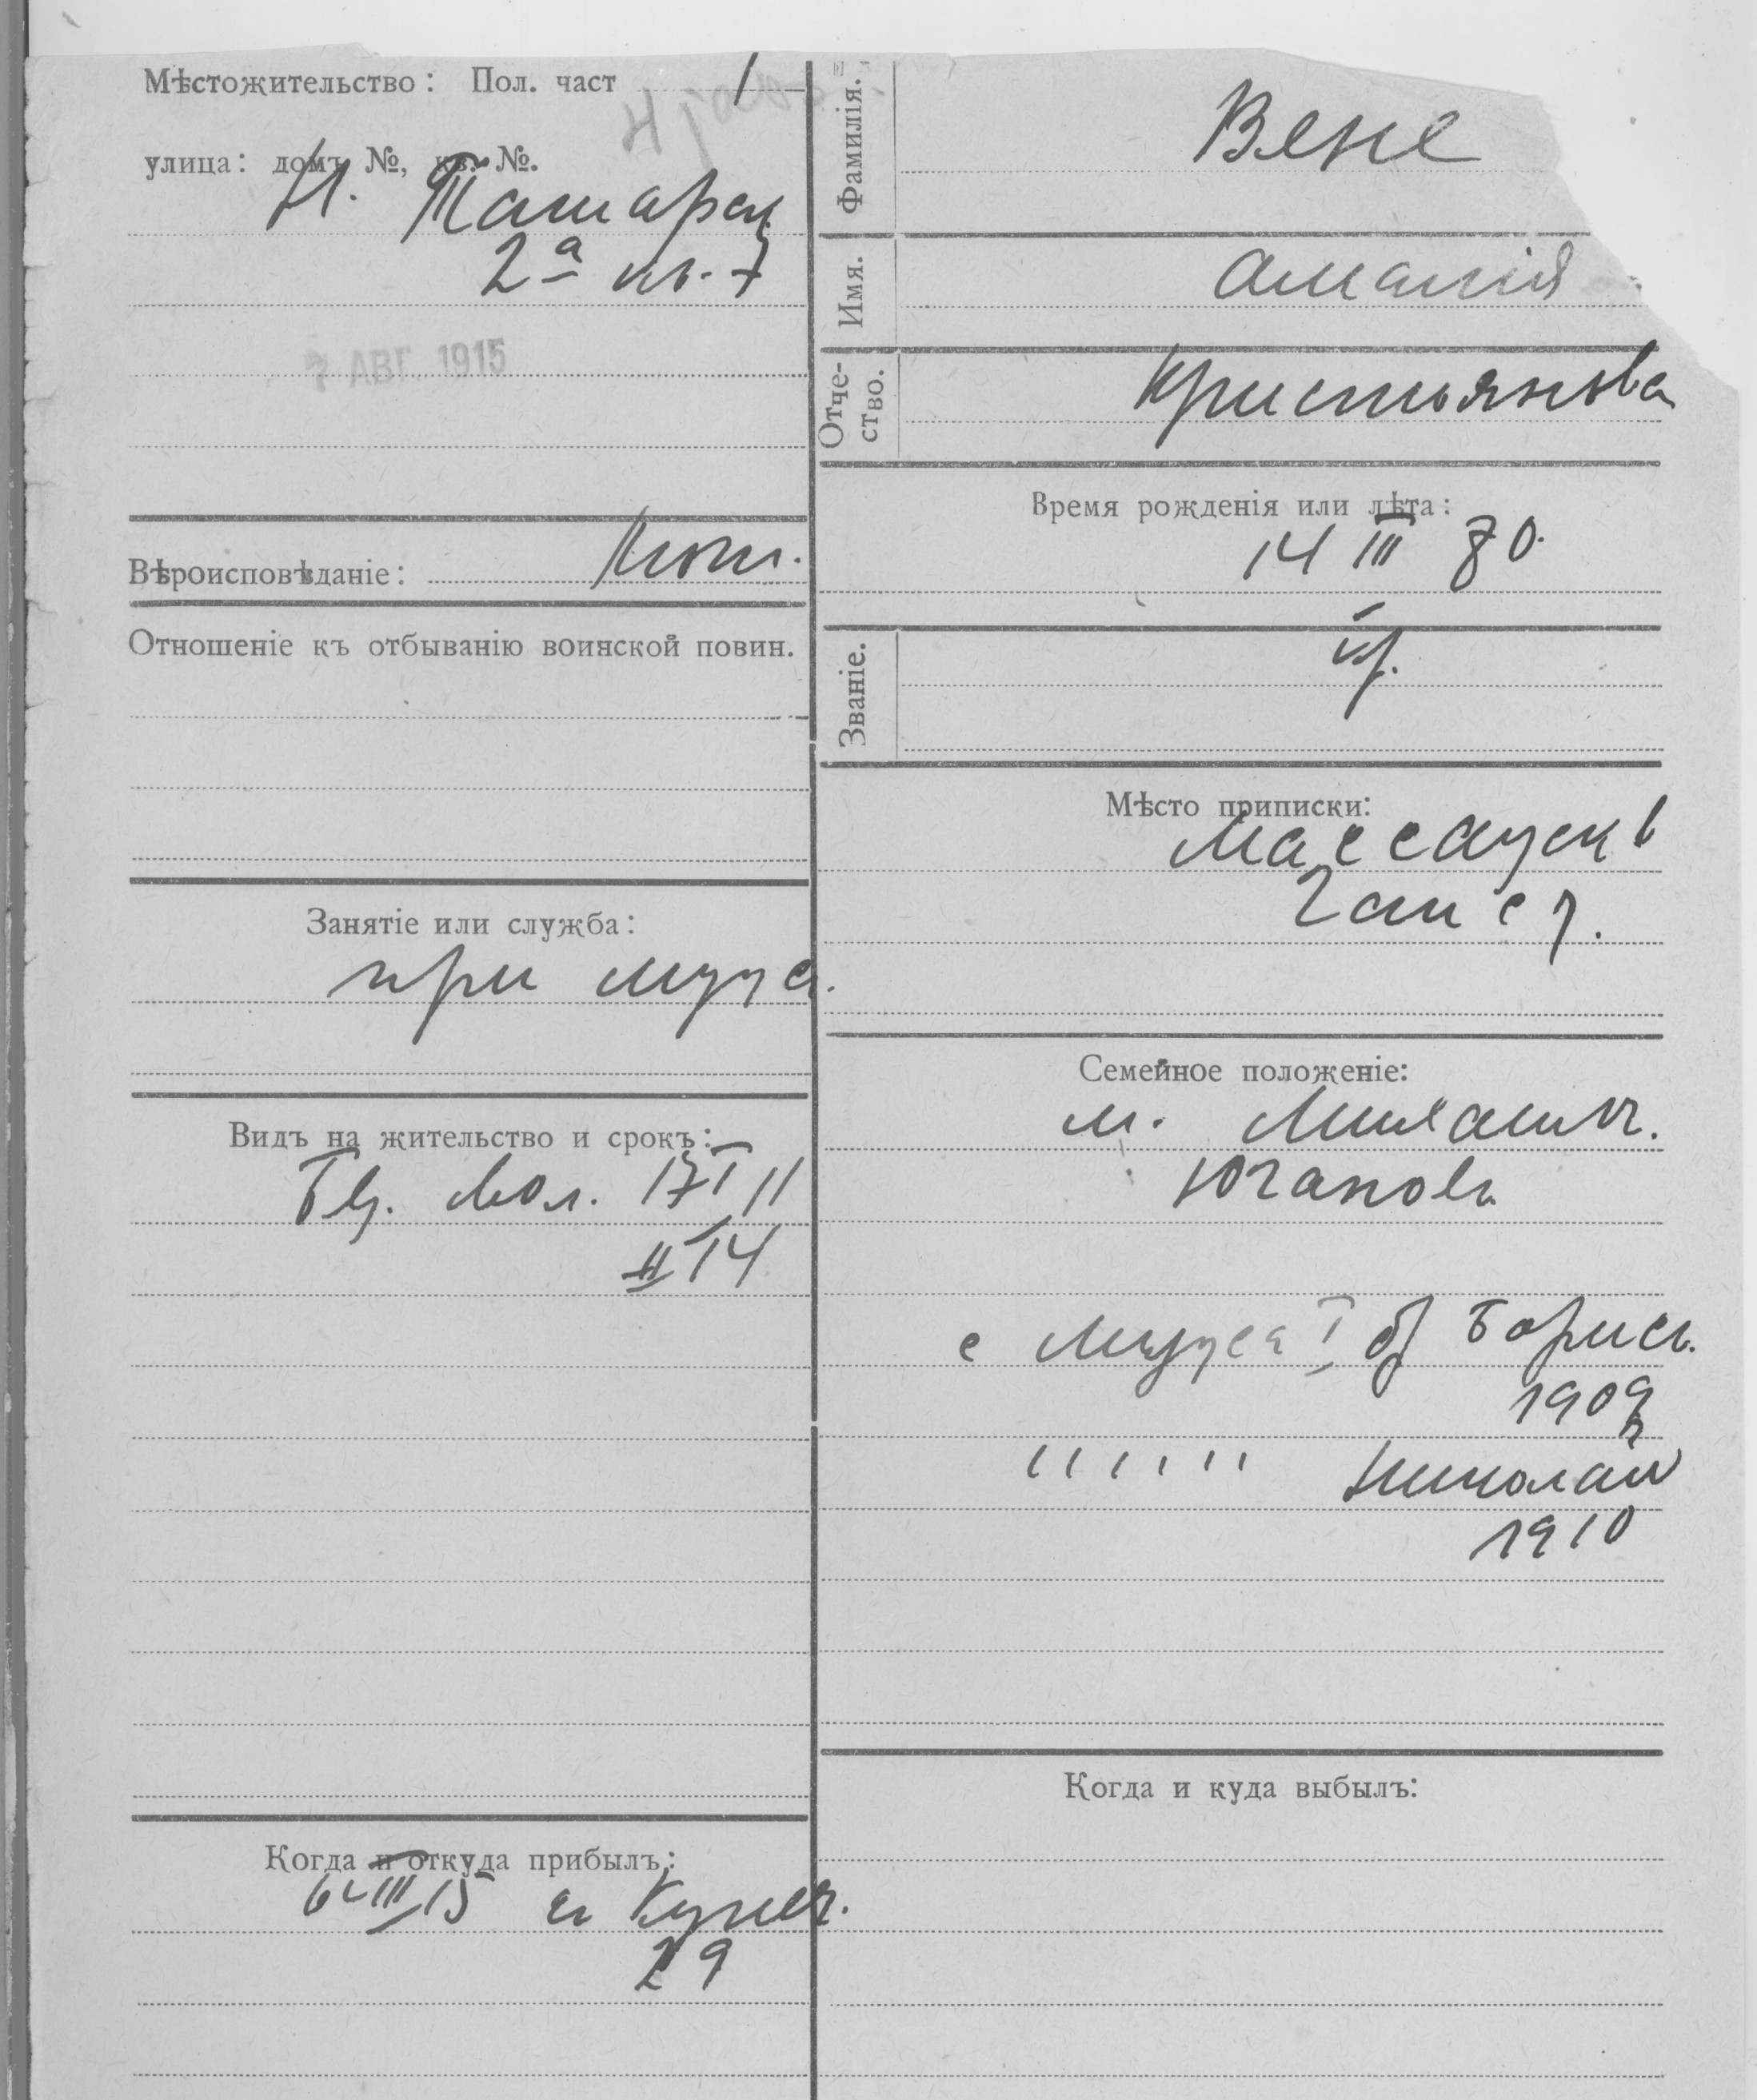 Мѣстожительство: Пол. част 1
улица: домъ №, кв. №.
Н. Татарск.
2ª кв. 7
7 АВГ. 1915
Вѣроисповѣданіе: Лют.
Отношеніе къ отбыванію воинской повин.
Занятіе или служба:
при мужѣ.
Видъ на жительство и срокъ:
17 I 11
II 14
Когда и откуда прибылъ:
III 15
29
Фамилія. Вене
Имя. Амалія
Отче-
ство. Кристьянова
Время рожденія или лѣта:
14 III 80.
Званіе. кр.
Мѣсто приписки:
Семейное положеніе:
м. Михаилъ.
Югановъ
с мужа I бр Борисъ.
1909
" " " Николай
1910
Когда и куда выбылъ: